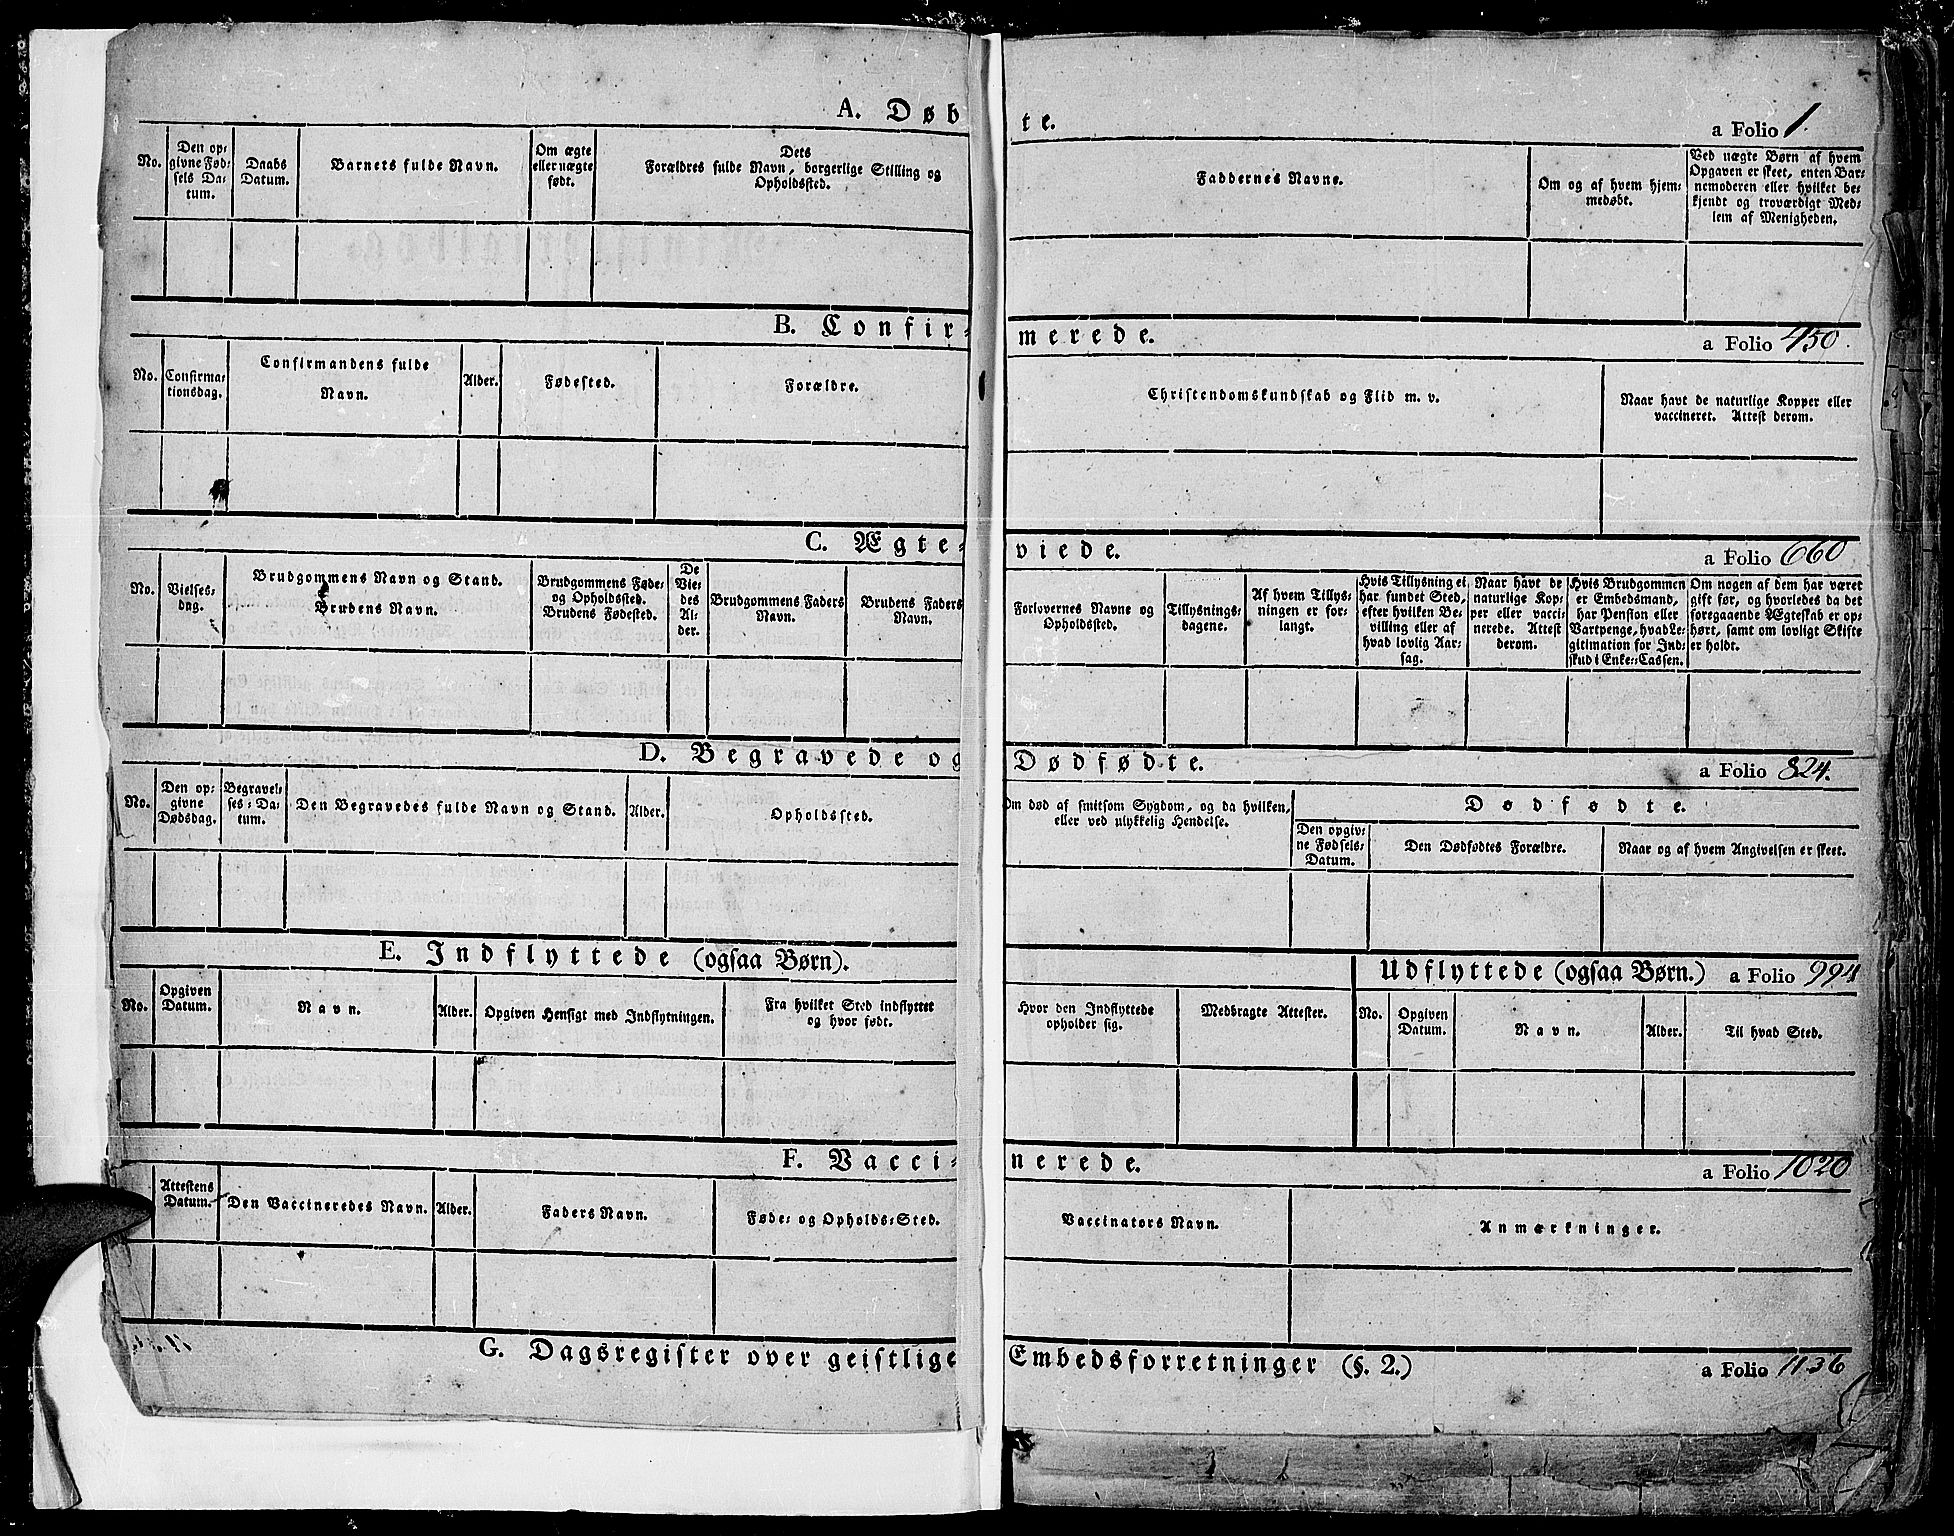 A. Døbte. a Folio 1.
No.
Den op=
givne Fød=
sels Da=
tum.
Daabs
Datum.
Barnets fulde Navn.
Om ægte
eller uægte
født.
Dets
Forældres fulde Navn, borgerlige Stilling og
Opholdssted.
Faddernes Navne.
Om og af hvem hjem=
medøbt.
Ved uægte Børn af hvem
Opgaven er skeet, enten Bar=
nemoderen eller hvilket be=
kjendt og troværdigt Med=
lem af Menigheden.
B. Confir=merede. a Folio 450.
No.
Confirma=
tionsdag.
Confirmandens fulde
Navn.
Alder.
Fødested.
Forældre.
Christendomskundskab og Flid m. v.
Naar havt de naturlige Kopper eller
vaccineret. Attest derom.
C. Ægte=viede. a Folio 660
No.
Vielses=
dag.
Brudgommens Navn og Stand.
Brudens Navn.
Brudgommens Føde=
og Opholdssted.
Brudens Fødested.
De
Vie=
des
Al=
der.
Brudgommens Faders
Navn.
Brudens Faders
Navn.
Forlovernes Navne og
Opholdssted.
Tillysnings=
dagene.
Af hvem Tillys=
ningen er for=
langt.
Hvis Tillysning ei
har fundet Sted,
efter hvilken Be=
villing eller af
hvad lovlig Aar=
sag.
Naar havt de
naturlige Kop=
per eller vacci=
nerede. Attest
derom.
Hvis Brudgommen
er Embedsmand,
har Pension eller
Vartpenge, hvad Le=
gitimation for Ind=
skud i Enke=Cassen.
Om nogen af dem har været
gift før, og hvorledes da det
foregaaende Ægteskab er op=
hørt, samt om lovligt Skifte
er holdt.
D. Begravede og Dødfødte. a Folio 824.
No.
Den op=
givne
Dødsdag.
Begravel=
ses=Da=
tum.
Den Begravedes fulde Navn og Stand.
Alder.
Opholdssted.
Om død af smitsom Sygdom, og da hvilken,
eller ved ulykkelig Hendelse.
Dødfødte.
Den opgiv=
ne Fødsels=
Datum.
Den Dødfødtes Forældre.
Naar og af hvem Angivelsen er skeet.
E. Indflyttede (ogsaa Børn). Udflyttede (ogsaa Børn.) a Folio 994
No.
Opgiven
Datum.
Navn.
Alder.
Opgiven Hensigt med Indflytningen.
Fra hvilket Sted indflyttet
og hvor født.
Hvor den Indflyttede
opholder sig.
Medbragte Attester.
No.
Opgiven
Datum.
Navn.
Alder.
Til hvad Sted.
F. Vacci=nerede. a Folio 1020
Attestens
Datum.
Den Vaccineredes Navn.
Alder.
Faders Navn.
Føde= og Opholds=Sted.
Vaccinators Navn.
Anmærkninger.
G. Dagsregister over geistlige Embedsforretninger (§. 2.) a Folio 1136